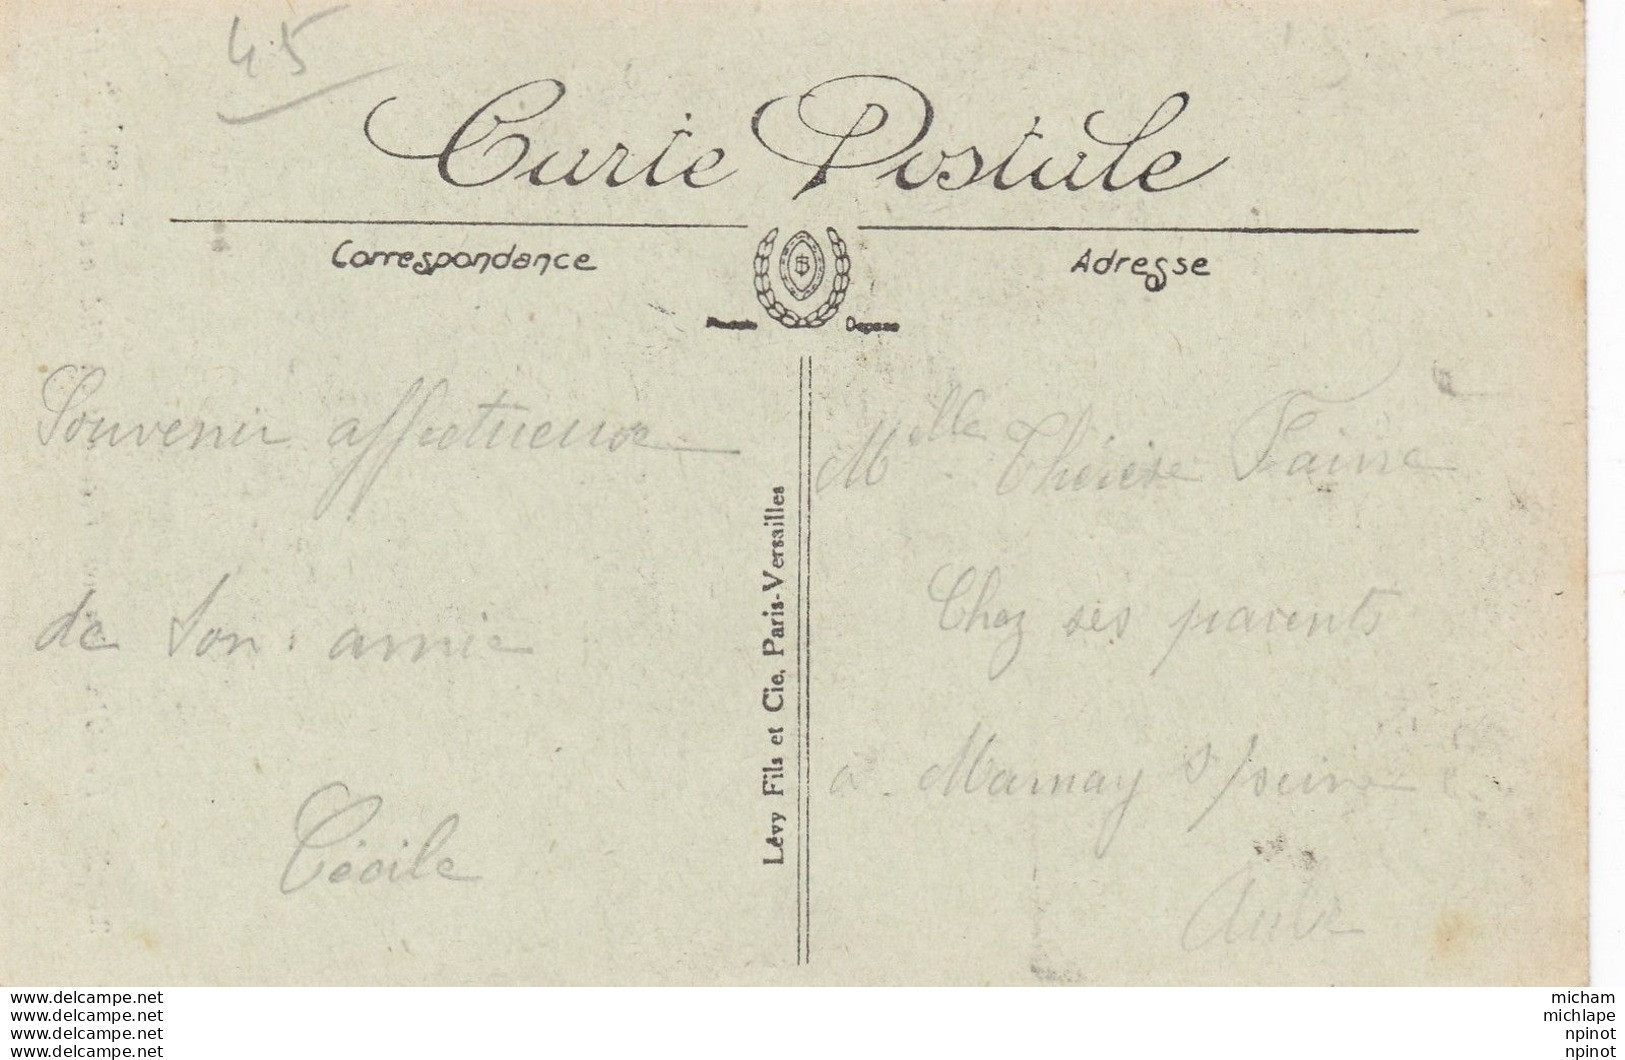 45
Carte Postale
Correspondance
Adresse
Souvenir affectueuse
de son amie
Cécile
Lévy Fils et Cie, Paris-Versailles
Melle Thérèse
Chez ses parents
à Marnay s/seine
Aube
www.delcampe.net
www.delcampe.net
www.delcampe.net
www.delcampe.net
micham
michlape
npinot
npinot